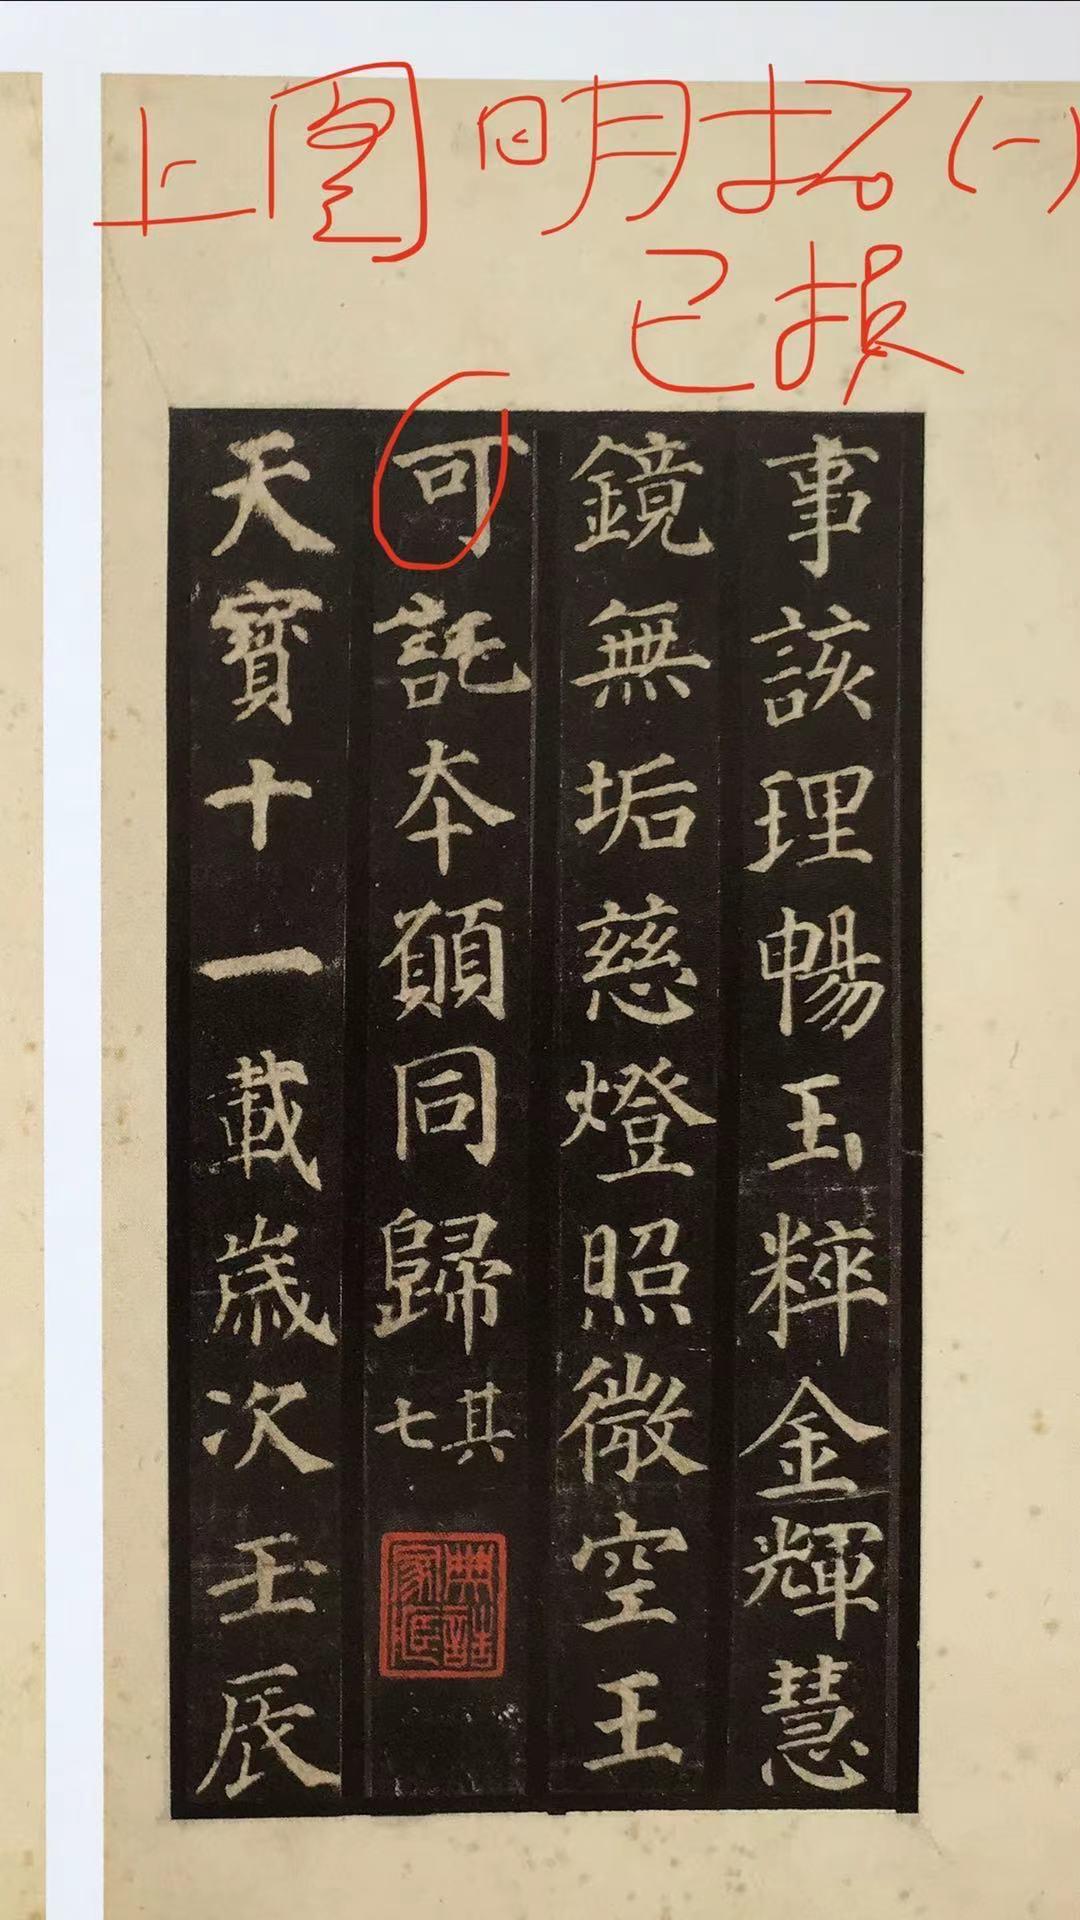 上图明拓(一)
已损
事該理暢玉粹金輝慧
鏡無垢慈燈照微空王
可託本願同歸其七
天寶十一載歲次壬辰